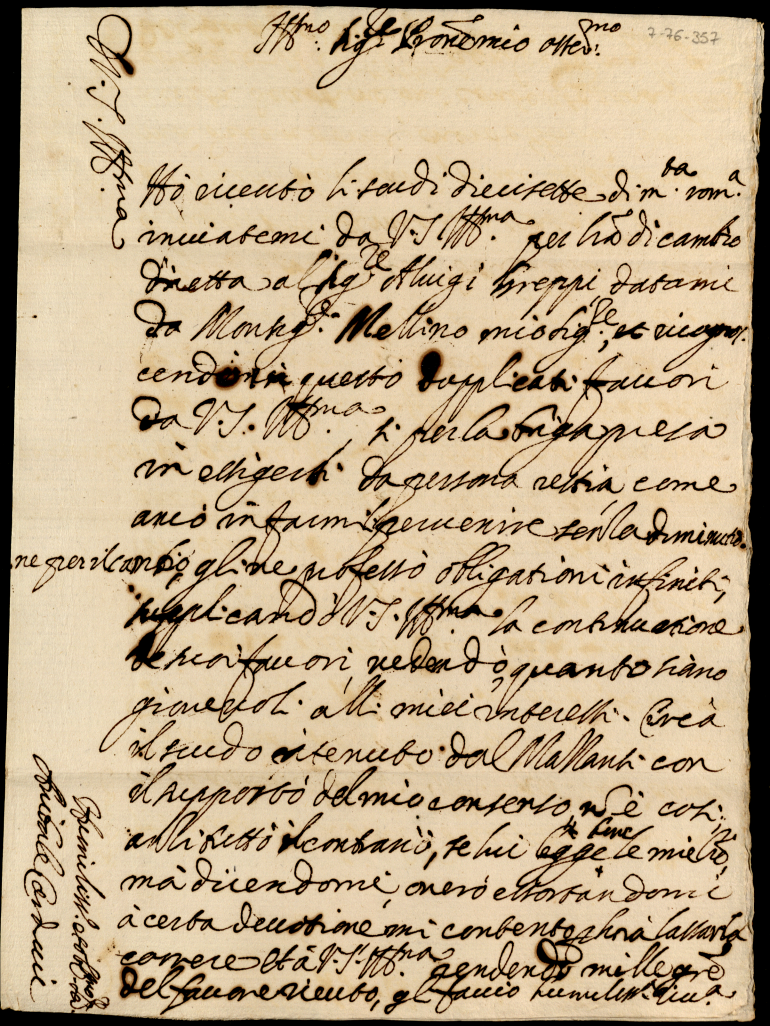 7-76-357
Ill.mo Sig.re Pron mio oss.mo
Hò riceuto li scudi diecisette di m.ta rom.a
inuiatemi da V.S. Ill.ma per lrã di cambio
diretta al Sig.re Aluigi Greppi datami
da Monsig.r Mellino mio Sig.re, et ricognos-
cendo in questo duplicati fauori
da V.S. Ill.ma, si per la briga presa
in essigerli da persona restia, come
anco in farmili peruenire senza diminutio-
ne per il cambio, gli ne professo obligationi infinite,
supplicando V.S. Ill.ma la continuatione
de suoi fauori, vedendo, quanto siano
gioueuoli alli miei interessi. Circa
il scudo ritenuto dal Massanti con
il supposto del mio consenso nõ è così,
anzi tutto il contrario, se lui legge le mie
mà dicendomi, ouero essortandomi
à certa deuotione, mi contento lassarla
correre. Et à V.S. Ill.ma rendendo mille grẽ
del fauore riceuto, gli faccio humiliss.a riu.a
V.S. Ill.ma
Humiliss.o et